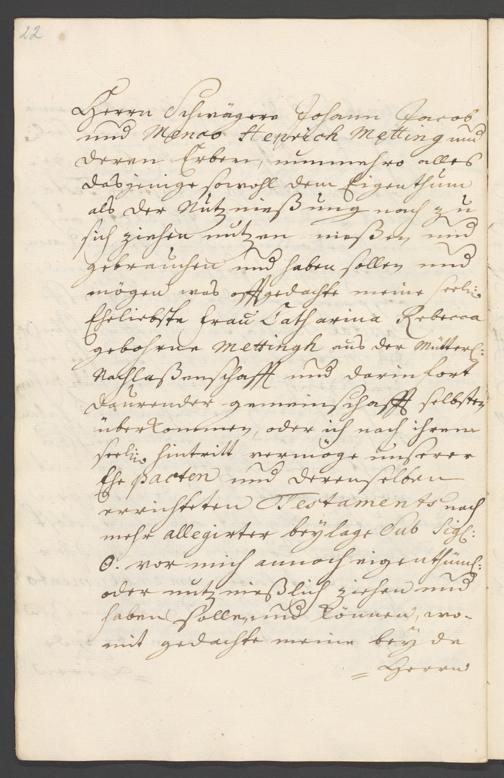 22
Herrn Schwägere Johann Jacob
und Menco Henrich Metting und
deren Erben, nunmehro alles
dasjenige sowohl dem Eigenthum
als der Nutznießung nach zu
sich ziehen nutzen nießen und
gebrauchen und haben sollen und
mögen was offtgedachte meine seeli:
Eheliebste Frau Catharina Rebecca
gebohrne Mettingh aus der Mütterl:
Nachlaßenschafft und darin fort
daurender gemeinschafft selbsten
überkommen, oder ich nach ihrem
seeli: hintritt vermöge unserer
Ehe pacten und derenselben
errichteten Testaments nach
mehr allegirter beylage Sub Sigl:
O. vor mich annoch eigenthüml:
oder nutznießlich ziehen und
haben sollen und können, wo-
mit gedachte meine beyde
= Herrn